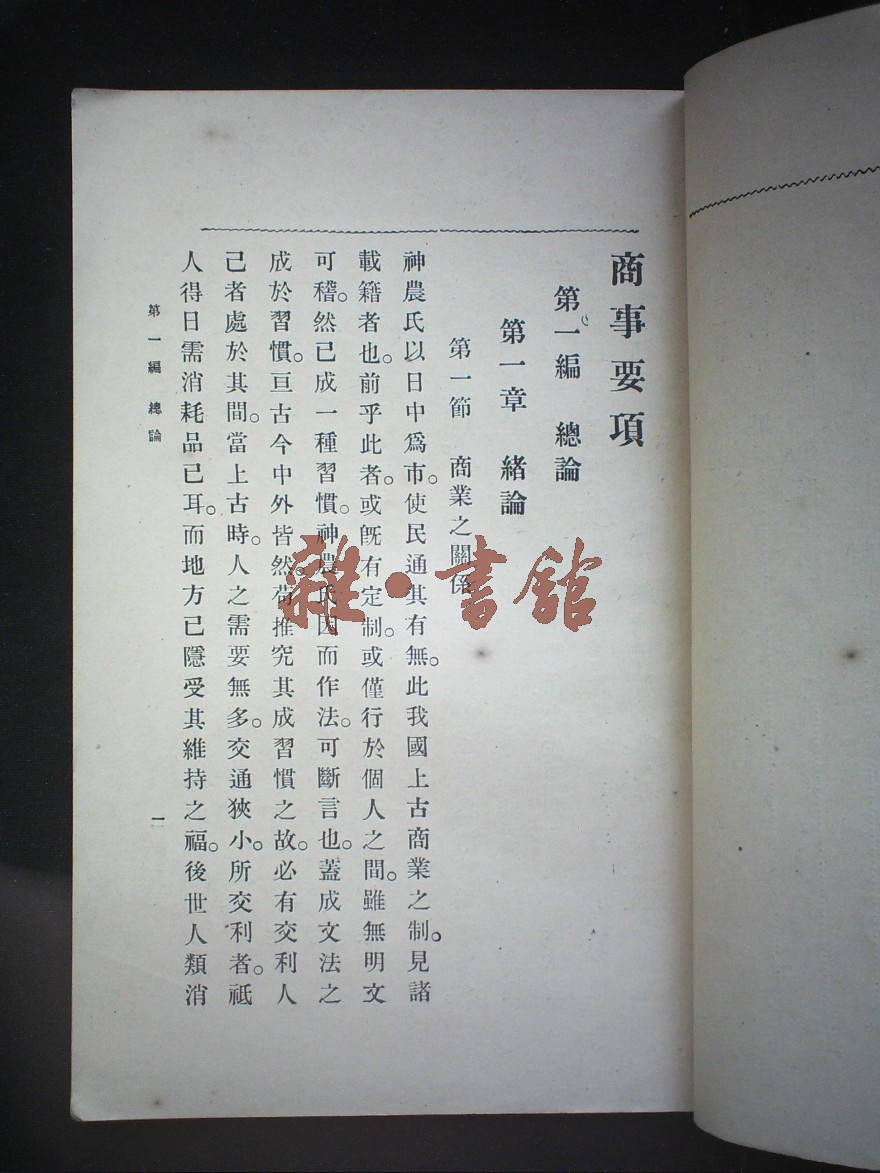 商事要項
第一編　總論
第一章　緒論
第一節　商業之關係
神農氏以日中爲市。使民通其有無。此我國上古商業之制。見諸
載籍者也。前乎此者。或旣有定制。或僅行於個人之間。雖無明文
可稽。然已成一種習慣。神農氏因而作法。可斷言也。蓋成文法之
成於習慣。亘古今中外皆然。苟推究其成習慣之故。必有交利人
己者處於其間。當上古時。人之需要無多。交通狹小。所交利者。祇
人得日需消耗品已耳。而地方已隱受其維持之福。後世人類消
第一編　總論
一
雜·書館